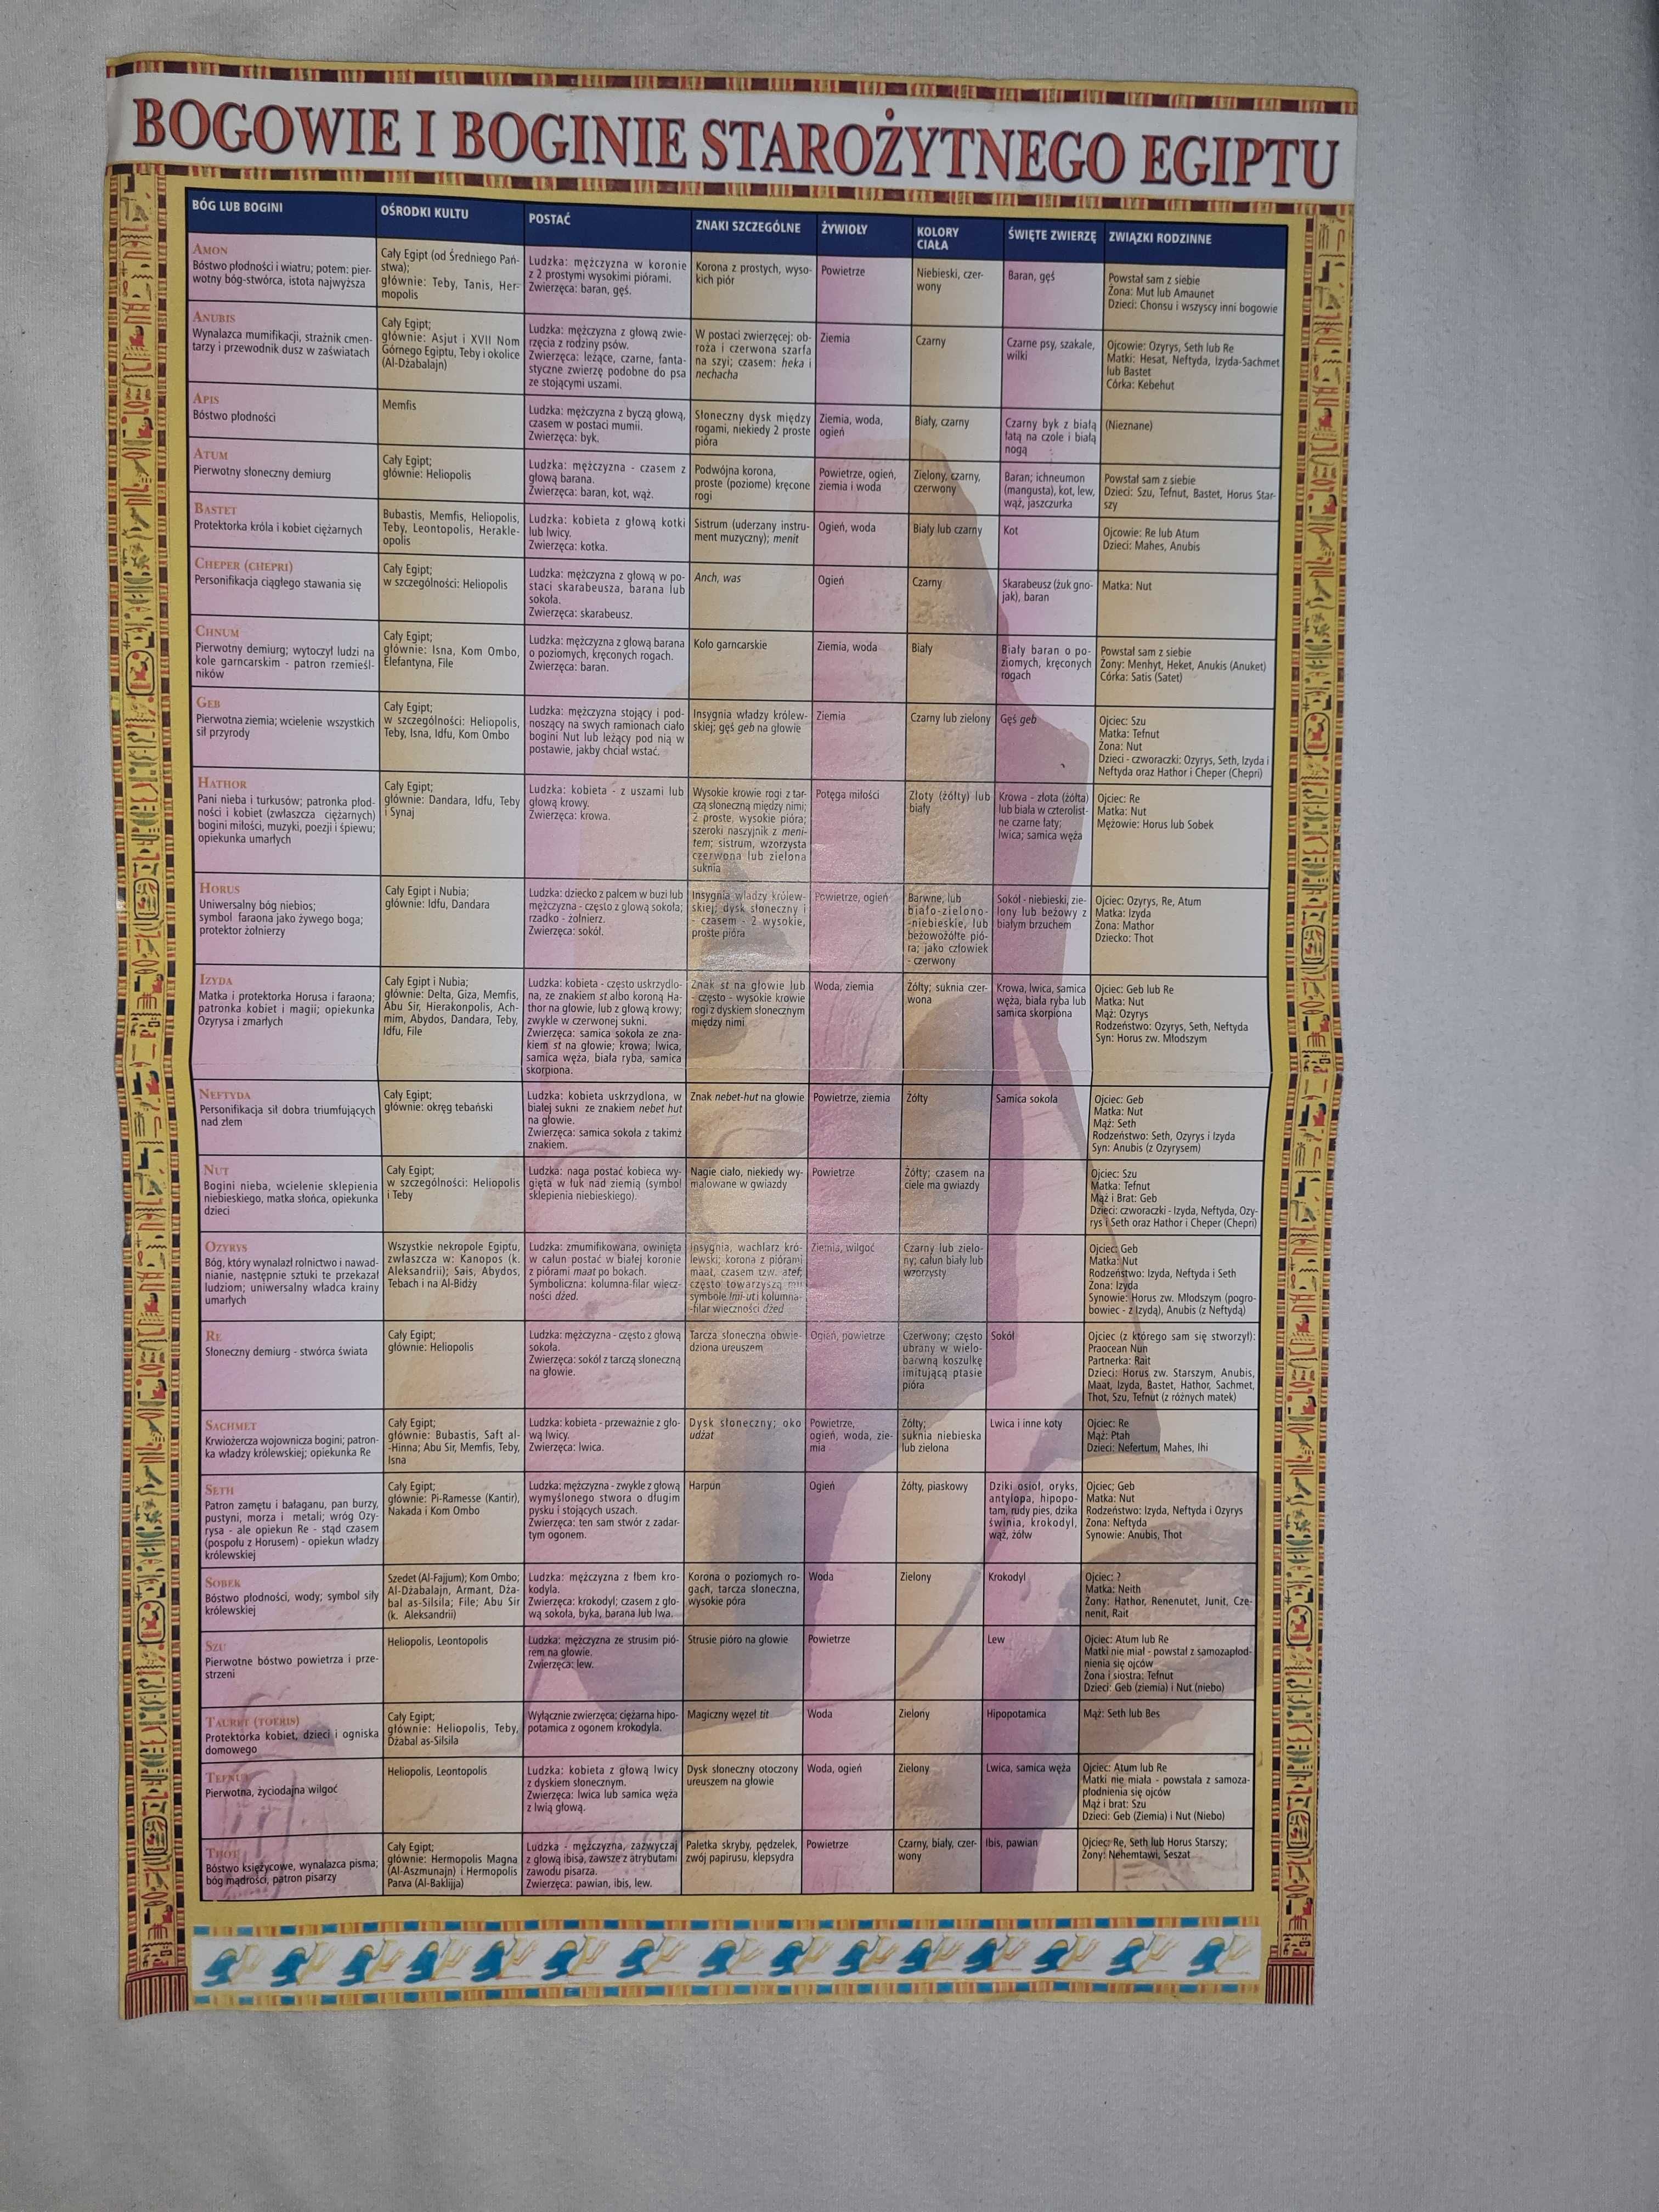 BOGOWIE I BOGINIE STAROŻYTNEGO EGIPTU
BÓG LUB BOGINI
OŚRODKI KULTU
POSTAĆ
ZNAKI SZCZEGÓLNE
ŻYWIOŁY
KOLORY
CIAŁA
ŚWIĘTE ZWIERZĘ
ZWIĄZKI RODZINNE
AMON
Bóstwo płodności i wiatru; potem: pier-
wotny bóg-stwórca, istota najwyższa
Cały Egipt (od Średniego Pań-
stwa);
głównie: Teby, Tanis, Her-
mopolis
Ludzka: mężczyzna w koronie
z 2 prostymi wysokimi piórami.
Zwierzęca: baran, gęś.
Korona z prostych, wyso-
kich piór
Powietrze
Niebieski, czer-
wony
Baran, gęś
Powstał sam z siebie
Żona: Mut lub Amaunet
Dzieci: Chonsu i wszyscy inni bogowie
ANUBIS
Wynalazca mumifikacji, strażnik cmen-
tarzy i przewodnik dusz w zaświatach
Cały Egipt;
głównie: Asjut i XVII Nom
Górnego Egiptu, Teby i okolice
(Al-Dżabalajn)
Ludzka: mężczyzna z głową zwie-
rzęcia z rodziny psów.
Zwierzęca: leżące, czarne, fanta-
styczne zwierzę podobne do psa
ze stojącymi uszami.
W postaci zwierzęcej: ob-
roża i czerwona szarfa
na szyi; czasem: heka i
nechacha
Ziemia
Czarny
Czarne psy, szakale,
wilki
Ojcowie: Ozyrys, Seth lub Re
Matki: Hesat, Neftyda, Izyda-Sachmet
lub Bastet
Córka: Kebehut
APIS
Bóstwo płodności
Memfis
Ludzka: mężczyzna z byczą głową,
czasem w postaci mumii.
Zwierzęca: byk.
Słoneczny dysk między
rogami, niekiedy 2 proste
pióra
Ziemia, woda,
ogień
Biały, czarny
Czarny byk z białą
łatą na czole i białą
nogą
(Nieznane)
ATUM
Pierwotny słoneczny demiurg
Cały Egipt;
głównie: Heliopolis
Ludzka: mężczyzna - czasem z
głową barana.
Zwierzęca: baran, kot, wąż.
Podwójna korona,
proste (poziome) kręcone
rogi
Powietrze, ogień,
ziemia i woda
Zielony, czarny,
czerwony
Baran; ichneumon
(mangusta), kot, lew,
wąż, jaszczurka
Powstał sam z siebie
Dzieci: Szu, Tefnut, Bastet, Horus Star-
szy
BASTET
Protektorka króla i kobiet ciężarnych
Bubastis, Memfis, Heliopolis,
Teby, Leontopolis, Herakle-
opolis
Ludzka: kobieta z głową kotki
lub lwicy.
Zwierzęca: kotka.
Sistrum (uderzany instru-
ment muzyczny); menit
Ogień, woda
Biały lub czarny
Kot
Ojcowie: Re lub Atum
Dzieci: Mahes, Anubis
CHEPER (CHEPRI)
Personifikacja ciągłego stawania się
Cały Egipt;
w szczególności: Heliopolis
Ludzka: mężczyzna z głową w po-
staci skarabeusza, barana lub
sokoła.
Zwierzęca: skarabeusz.
Anch, was
Ogień
Czarny
Skarabeusz (żuk gno-
jak), baran
Matka: Nut
CHNUM
Pierwotny demiurg; wytoczył ludzi na
kole garncarskim - patron rzemieśl-
ników
Cały Egipt;
głównie: Isna, Kom Ombo,
Elefantyna, File
Ludzka: mężczyzna z głową barana
o poziomych, kręconych rogach.
Zwierzęca: baran.
Koło garncarskie
Ziemia, woda
Biały
Biały baran o po-
ziomych, kręconych
rogach
Powstał sam z siebie
Żony: Menhyt, Heket, Anukis (Anuket)
Córka: Satis (Satet)
GEB
Pierwotna ziemia; wcielenie wszystkich
sił przyrody
Cały Egipt;
w szczególności: Heliopolis,
Teby, Isna, Idfu, Kom Ombo
Ludzka: mężczyzna stojący i pod-
noszący na swych ramionach ciało
bogini Nut lub leżący pod nią w
postawie, jakby chciał wstać.
Insygnia władzy królew-
skiej; gęś geb na głowie
Ziemia
Czarny lub zielony
Gęś geb
Ojciec: Szu
Matka: Tefnut
Żona: Nut
Dzieci - czworaczki: Ozyrys, Seth, Izyda i
Neftyda oraz Hathor i Cheper (Chepri)
HATHOR
Pani nieba i turkusów; patronka płod-
ności i kobiet (zwłaszcza ciężarnych)
bogini miłości, muzyki, poezji i śpiewu;
opiekunka umarłych
Cały Egipt;
głównie: Dandara, Idfu, Teby
i Synaj
Ludzka: kobieta - z uszami lub
głową krowy.
Zwierzęca: krowa.
Wysokie krowie rogi z tar-
czą słoneczną między nimi;
2 proste, wysokie pióra;
szeroki naszyjnik z meni-
tem; sistrum, wzorzysta
czerwona lub zielona
suknia
Potęga miłości
Złoty (żółty) lub
biały
Krowa - złota (żółta)
lub biała w czterolist-
ne czarne łaty;
lwica; samica węża
Ojciec: Re
Matka: Nut
Mężowie: Horus lub Sobek
HORUS
Uniwersalny bóg niebios;
symbol faraona jako żywego boga;
protektor żołnierzy
Cały Egipt i Nubia;
głównie: Idfu, Dandara
Ludzka: dziecko z palcem w buzi lub
mężczyzna - często z głową sokoła;
rzadko - żołnierz.
Zwierzęca: sokół.
Insygnia władzy królew-
skiej; dysk słoneczny i
- czasem - 2 wysokie,
proste pióra
Powietrze, ogień
Barwne, lub
biało-zielono-
-niebieskie, lub
beżowożółte pió-
ra; jako człowiek
- czerwony
Sokół - niebieski, zie-
lony lub beżowy z
białym brzuchem
Ojciec: Ozyrys, Re, Atum
Matka: Izyda
Żona: Mathor
Dziecko: Thot
IZYDA
Matka i protektorka Horusa i faraona;
patronka kobiet i magii; opiekunka
Ozyrysa i zmarłych
Cały Egipt i Nubia;
głównie: Delta, Giza, Memfis,
Abu Sir, Hierakonpolis, Ach-
mim, Abydos, Dandara, Teby,
Idfu, File
Ludzka: kobieta - często uskrzydlo-
na, ze znakiem st albo koroną Ha-
thor na głowie, lub z głową krowy;
zwykle w czerwonej sukni.
Zwierzęca: samica sokoła ze zna-
kiem st na głowie; krowa; lwica,
samica węża, biała ryba, samica
skorpiona.
Znak st na głowie lub
- często - wysokie krowie
rogi z dyskiem słonecznym
między nimi
Woda, ziemia
Żółty; suknia czer-
wona
Krowa, lwica, samica
węża, biała ryba lub
samica skorpiona
Ojciec: Geb lub Re
Matka: Nut
Mąż: Ozyrys
Rodzeństwo: Ozyrys, Seth, Neftyda
Syn: Horus zw. Młodszym
NEFTYDA
Personifikacja sił dobra triumfujących
nad złem
Cały Egipt;
głównie: okręg tebański
Ludzka: kobieta uskrzydlona, w
białej sukni ze znakiem nebet hut
na głowie.
Zwierzęca: samica sokoła z takimż
znakiem.
Znak nebet-hut na głowie
Powietrze, ziemia
Żółty
Samica sokoła
Ojciec: Geb
Matka: Nut
Mąż: Seth
Rodzeństwo: Seth, Ozyrys i Izyda
Syn: Anubis (z Ozyrysem)
NUT
Bogini nieba, wcielenie sklepienia
niebieskiego, matka słońca, opiekunka
dzieci
Cały Egipt;
w szczególności: Heliopolis
i Teby
Ludzka: naga postać kobieca wy-
gięta w łuk nad ziemią (symbol
sklepienia niebieskiego).
Nagie ciało, niekiedy wy-
malowane w gwiazdy
Powietrze
Żółty; czasem na
ciele ma gwiazdy
Ojciec: Szu
Matka: Tefnut
Mąż i Brat: Geb
Dzieci: czworaczki - Izyda, Neftyda, Ozy-
rys i Seth oraz Hathor i Cheper (Chepri)
OZYRYS
Bóg, który wynalazł rolnictwo i nawad-
nianie, następnie sztuki te przekazał
ludziom; uniwersalny władca krainy
umarłych
Wszystkie nekropole Egiptu,
zwłaszcza w: Kanopos (k.
Aleksandrii); Sais, Abydos,
Tebach i na Al-Bidży
Ludzka: zmumifikowana, owinięta
w całun postać w białej koronie
z piórami maat po bokach.
Symboliczna: kolumna-filar wiecz-
ności dżed.
Insygnia, wachlarz kró-
lewski; korona z piórami
maat, czasem tzw. atef;
często towarzyszą mu
symbole Imi-ut i kolumna-
-filar wieczności dżed
Ziemia, wilgoć
Czarny lub zielo-
ny; całun biały lub
wzorzysty
Ojciec: Geb
Matka: Nut
Rodzeństwo: Izyda, Neftyda i Seth
Żona: Izyda
Synowie: Horus zw. Młodszym (pogro-
bowiec - z Izydą), Anubis (z Neftydą)
RE
Słoneczny demiurg - stwórca świata
Cały Egipt;
głównie: Heliopolis
Ludzka: mężczyzna - często z głową
sokoła.
Zwierzęca: sokół z tarczą słoneczną
na głowie.
Tarcza słoneczna obwie-
dziona ureuszem
Ogień, powietrze
Czerwony; często
ubrany w wielo-
barwną koszulkę
imitującą ptasie
pióra
Sokół
Ojciec (z którego sam się stworzył):
Praocean Nun
Partnerka: Rait
Dzieci: Horus zw. Starszym, Anubis,
Maat, Izyda, Bastet, Hathor, Sachmet,
Thot, Szu, Tefnut (z różnych matek)
SACHMET
Krwiożercza wojownicza bogini; patron-
ka władzy królewskiej; opiekunka Re
Cały Egipt;
głównie: Bubastis, Saft al-
-Hinna; Abu Sir, Memfis, Teby,
Isna
Ludzka: kobieta - przeważnie z gło-
wą lwicy.
Zwierzęca: lwica.
Dysk słoneczny; oko
udżat
Powietrze,
ogień, woda, zie-
mia
Żółty;
suknia niebieska
lub zielona
Lwica i inne koty
Ojciec: Re
Mąż: Ptah
Dzieci: Nefertum, Mahes, Ihi
SETH
Patron zamętu i bałaganu, pan burzy,
pustyni, morza i metali; wróg Ozy-
rysa - ale opiekun Re - stąd czasem
(pospołu z Horusem) - opiekun władzy
królewskiej
Cały Egipt;
głównie: Pi-Ramesse (Kantir),
Nakada i Kom Ombo
Ludzka: mężczyzna - zwykle z głową
wymyślonego stwora o długim
pysku i stojących uszach.
Zwierzęca: ten sam stwór z zadar-
tym ogonem.
Harpun
Ogień
Żółty, piaskowy
Dziki osioł, oryks,
antylopa, hipopo-
tam, rudy pies, dzika
świnia, krokodyl,
wąż, żółw
Ojciec; Geb
Matka: Nut
Rodzeństwo: Izyda, Neftyda i Ozyrys
Żona: Neftyda
Synowie: Anubis, Thot
SOBEK
Bóstwo płodności, wody; symbol siły
królewskiej
Szedet (Al-Fajjum); Kom Ombo;
Al-Dżabalajn, Armant, Dża-
bal as-Silsila; File; Abu Sir
(k. Aleksandrii)
Ludzka: mężczyzna z łbem kro-
kodyla.
Zwierzęca: krokodyl; czasem z gło-
wą sokoła, byka, barana lub lwa.
Korona o poziomych ro-
gach, tarcza słoneczna,
wysokie póra
Woda
Zielony
Krokodyl
Ojciec: ?
Matka: Neith
Żony: Hathor, Renenutet, Junit, Cze-
nenit, Rait
SZU
Pierwotne bóstwo powietrza i prze-
strzeni
Heliopolis, Leontopolis
Ludzka: mężczyzna ze strusim pió-
rem na głowie.
Zwierzęca: lew.
Strusie pióro na głowie
Powietrze
Lew
Ojciec: Atum lub Re
Matki nie miał - powstał z samozapłod-
nienia się ojców
Żona i siostra: Tefnut
Dzieci: Geb (ziemia) i Nut (niebo)
TAURET (TOERIS)
Protektorka kobiet, dzieci i ogniska
domowego
Cały Egipt;
głównie: Heliopolis, Teby,
Dżabal as-Silsila
Wyłącznie zwierzęca; ciężarna hipo-
potamica z ogonem krokodyla.
Magiczny węzeł tit
Woda
Zielony
Hipopotamica
Mąż: Seth lub Bes
TEFNUT
Pierwotna, życiodajna wilgoć
Heliopolis, Leontopolis
Ludzka: kobieta z głową lwicy
z dyskiem słonecznym.
Zwierzęca: lwica lub samica węża
z lwią głową.
Dysk słoneczny otoczony
ureuszem na głowie
Woda, ogień
Zielony
Lwica, samica węża
Ojciec: Atum lub Re
Matki nie miała - powstała z samoza-
płodnienia się ojców
Mąż i brat: Szu
Dzieci: Geb (Ziemia) i Nut (Niebo)
THOT
Bóstwo księżycowe, wynalazca pisma;
bóg mądrości, patron pisarzy
Cały Egipt;
głównie: Hermopolis Magna
(Al-Aszmunajn) i Hermopolis
Parva (Al-Baklijja)
Ludzka - mężczyzna, zazwyczaj
z głową ibisa, zawsze z atrybutami
zawodu pisarza.
Zwierzęca: pawian, ibis, lew.
Paletka skryby, pędzelek,
zwój papirusu, klepsydra
Powietrze
Czarny, biały, czer-
wony
Ibis, pawian
Ojciec: Re, Seth lub Horus Starszy;
Żony: Nehemtawi, Seszat